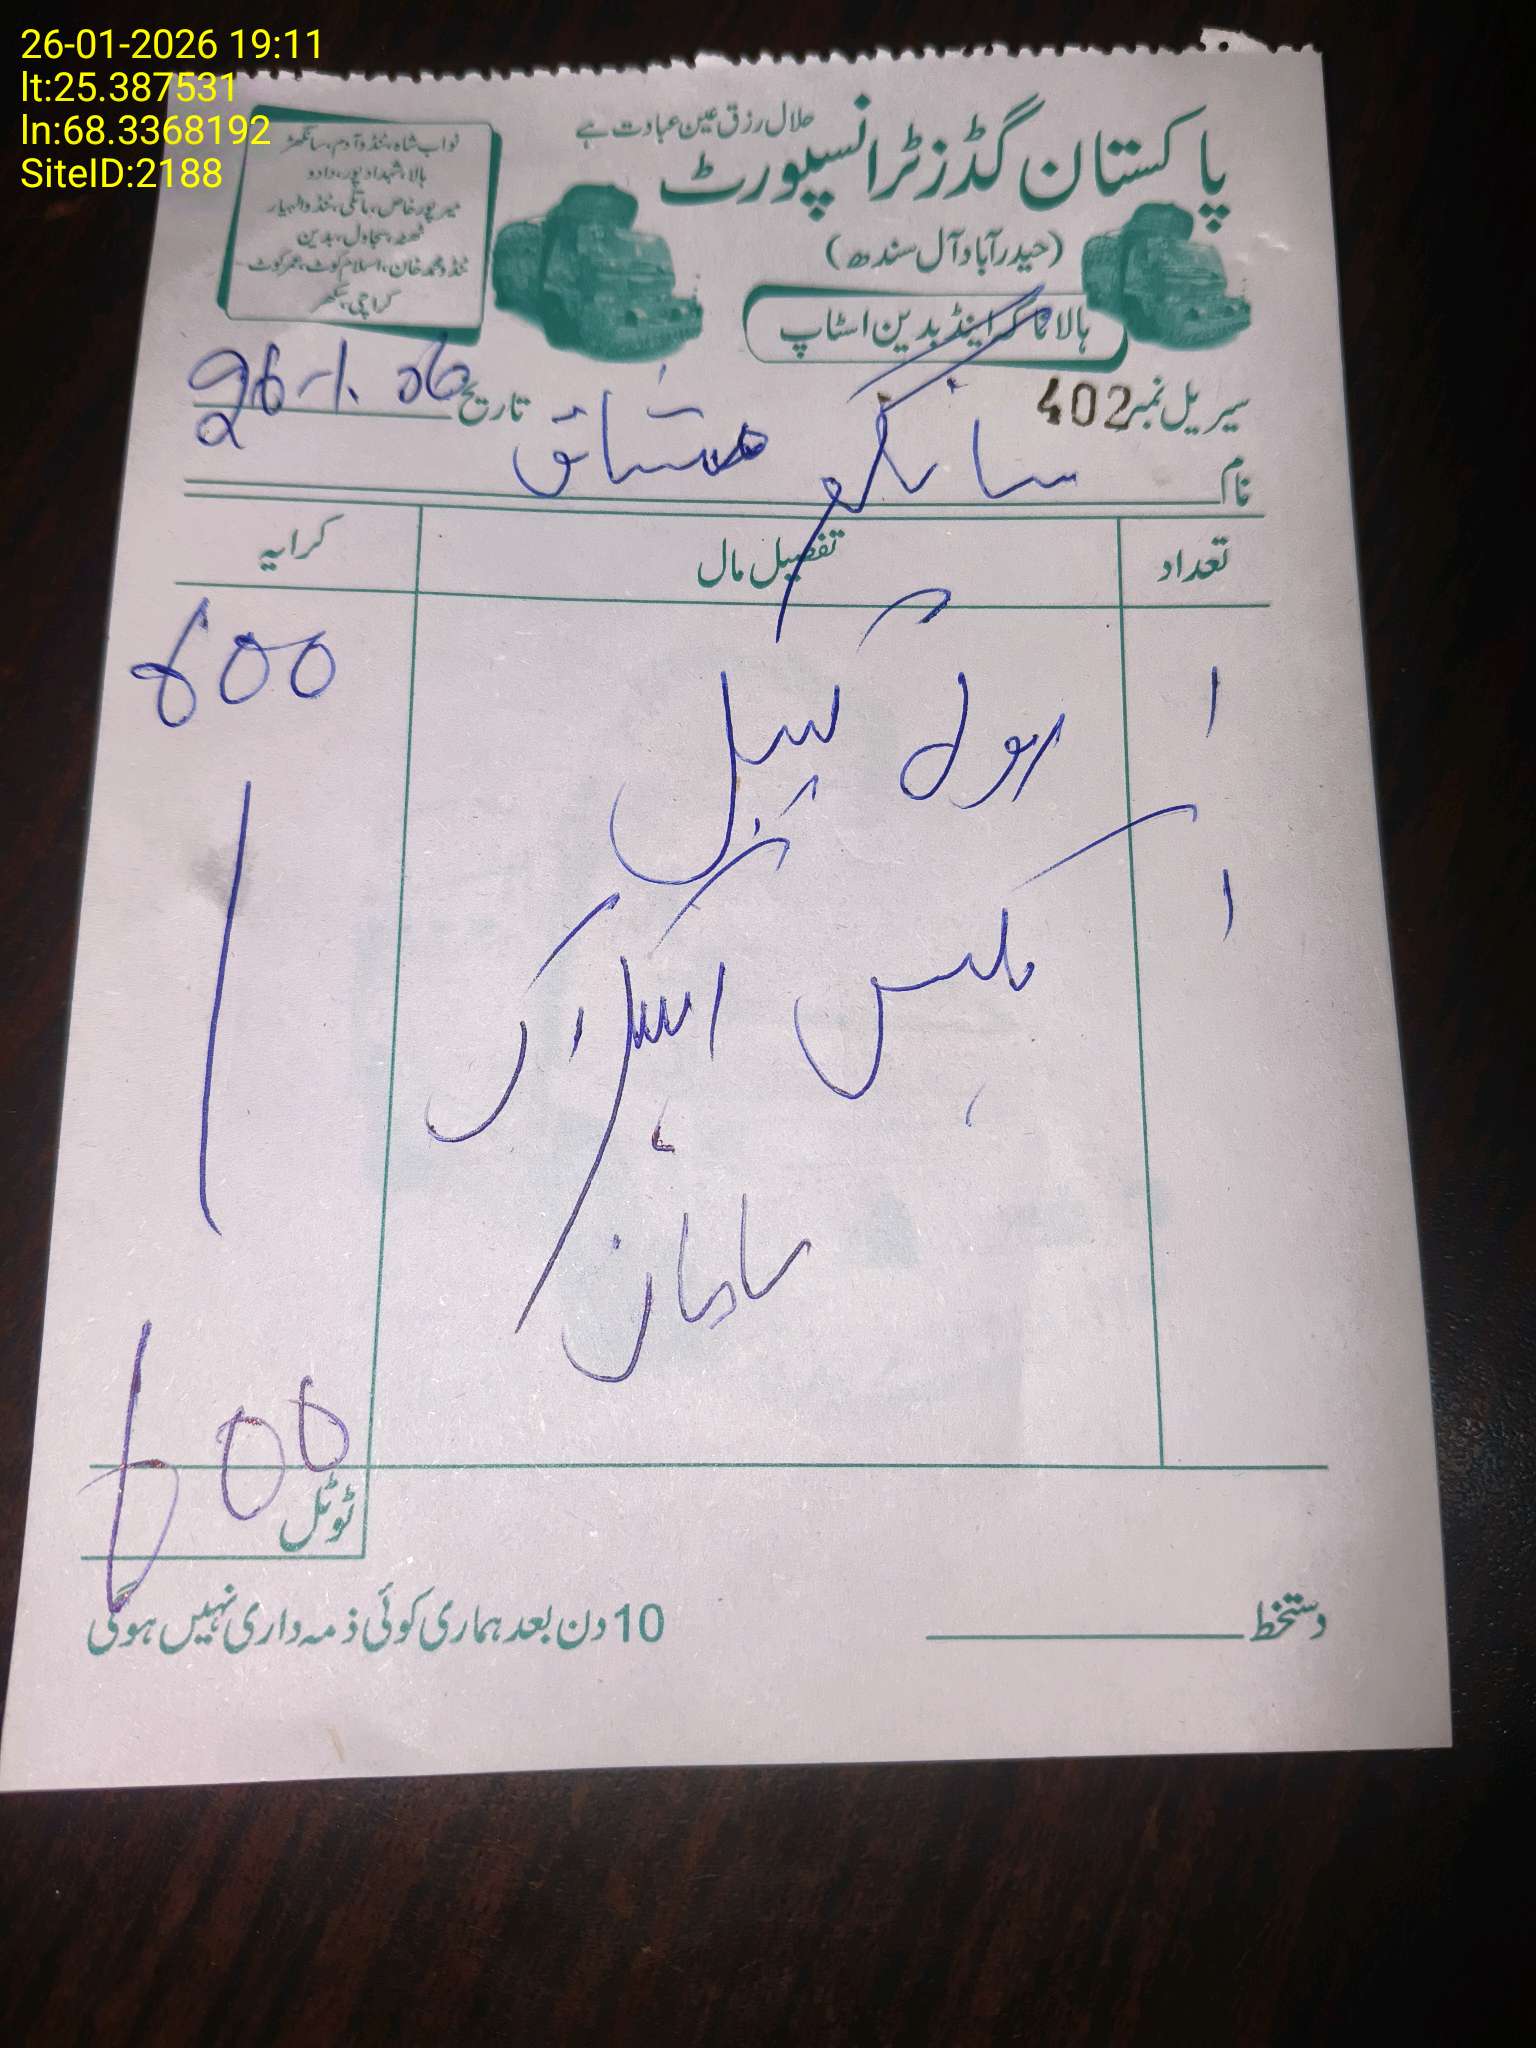 26-01-2026 19:11
lt:25.387531
ln:68.3368192
SiteID:2188
حلال رزق عین عبادت ہے
پاکستان گڈز ٹرانسپورٹ
(حیدرآباد آل سندھ)
ہالا ناکہ اینڈ بدین اسٹاپ
نواب شاہ، ٹنڈوآدم، سانگھڑ
ہالا، شہدادپور، دادو
میرپورخاص، ماتلی، ٹنڈوالہیار
ٹھٹھہ، سجاول، بدین
ٹنڈومحمدخان، اسلام کوٹ، عمرکوٹ
کراچی، سکھر
سیریل نمبر 402
تاریخ 26-1-
نام سانگھڑ مشتاق
تعداد تفصیل مال کرایہ
1 رول کیبل 600
1 بکس الیکٹرک
سامان
ٹوٹل 600
دستخط
10 دن بعد ہماری کوئی ذمہ داری نہیں ہوگی